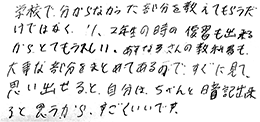 学校で分からなかった部分を教えてもらうだ
けではなく、1、2年生の時の復習も出来る
からとてもうれしい。あすなろさんの教科書も
大事な部分をまとめてあるので、すぐに見て、
思い出せると、自分は、ちゃんと暗記出来
ると思うから、すごくいいです。